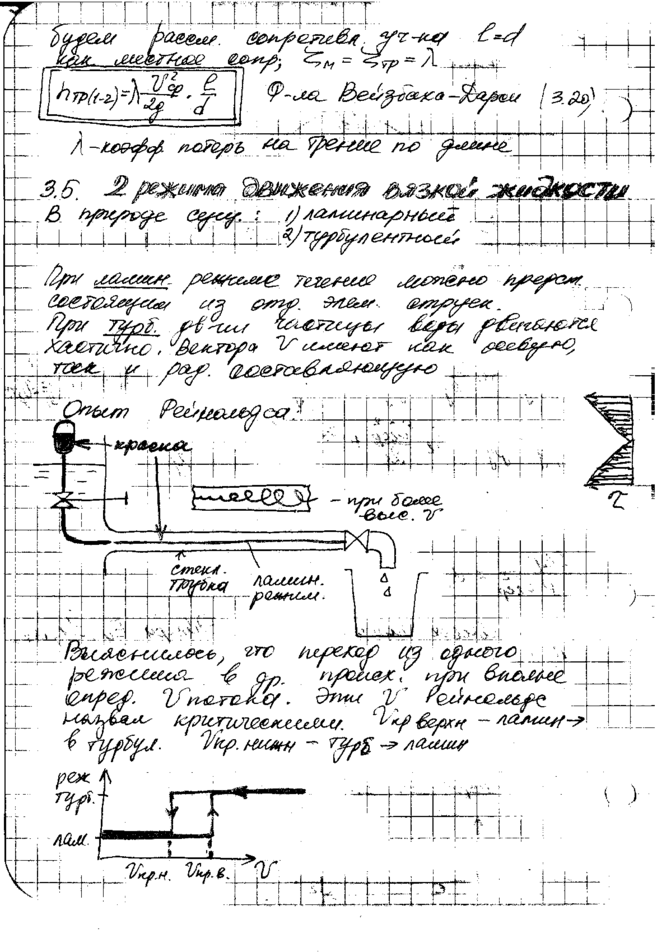 будем рассм. сопротивл. уч-ка l=d
как местное сопр; ζм = ζтр = λ
hтр(1-2)=λ V²ср/2g · l/d Ф-ла Вейзбаха-Дарси (3.20)
λ-коэфф. потерь на трение по длине
3.5. 2 режима движения вязкой жидкости
В природе сущ.: 1) ламинарный
2) турбулентный
При ламин. режиме течение можно предст.
состоящим из отд. элем. струек.
При турб. дв-нии частицы воды движутся
хаотично. Вектора V имеют как осевую,
так и рад. составляющую
Опыт Рейнольдса:
краска
- при более
выс. V
τ
стекл.
трубка
ламин.
режим.
Выяснилось, что переход из одного
режима в др. происх. при вполне
опред. V потока. Эти V Рейнольдс
назвал критическими. Vкр верхн – ламин→
в турбул. Vкр. нижн – турб → ламин
реж
турб.
лам.
Vкр.н. Vкр.в. V